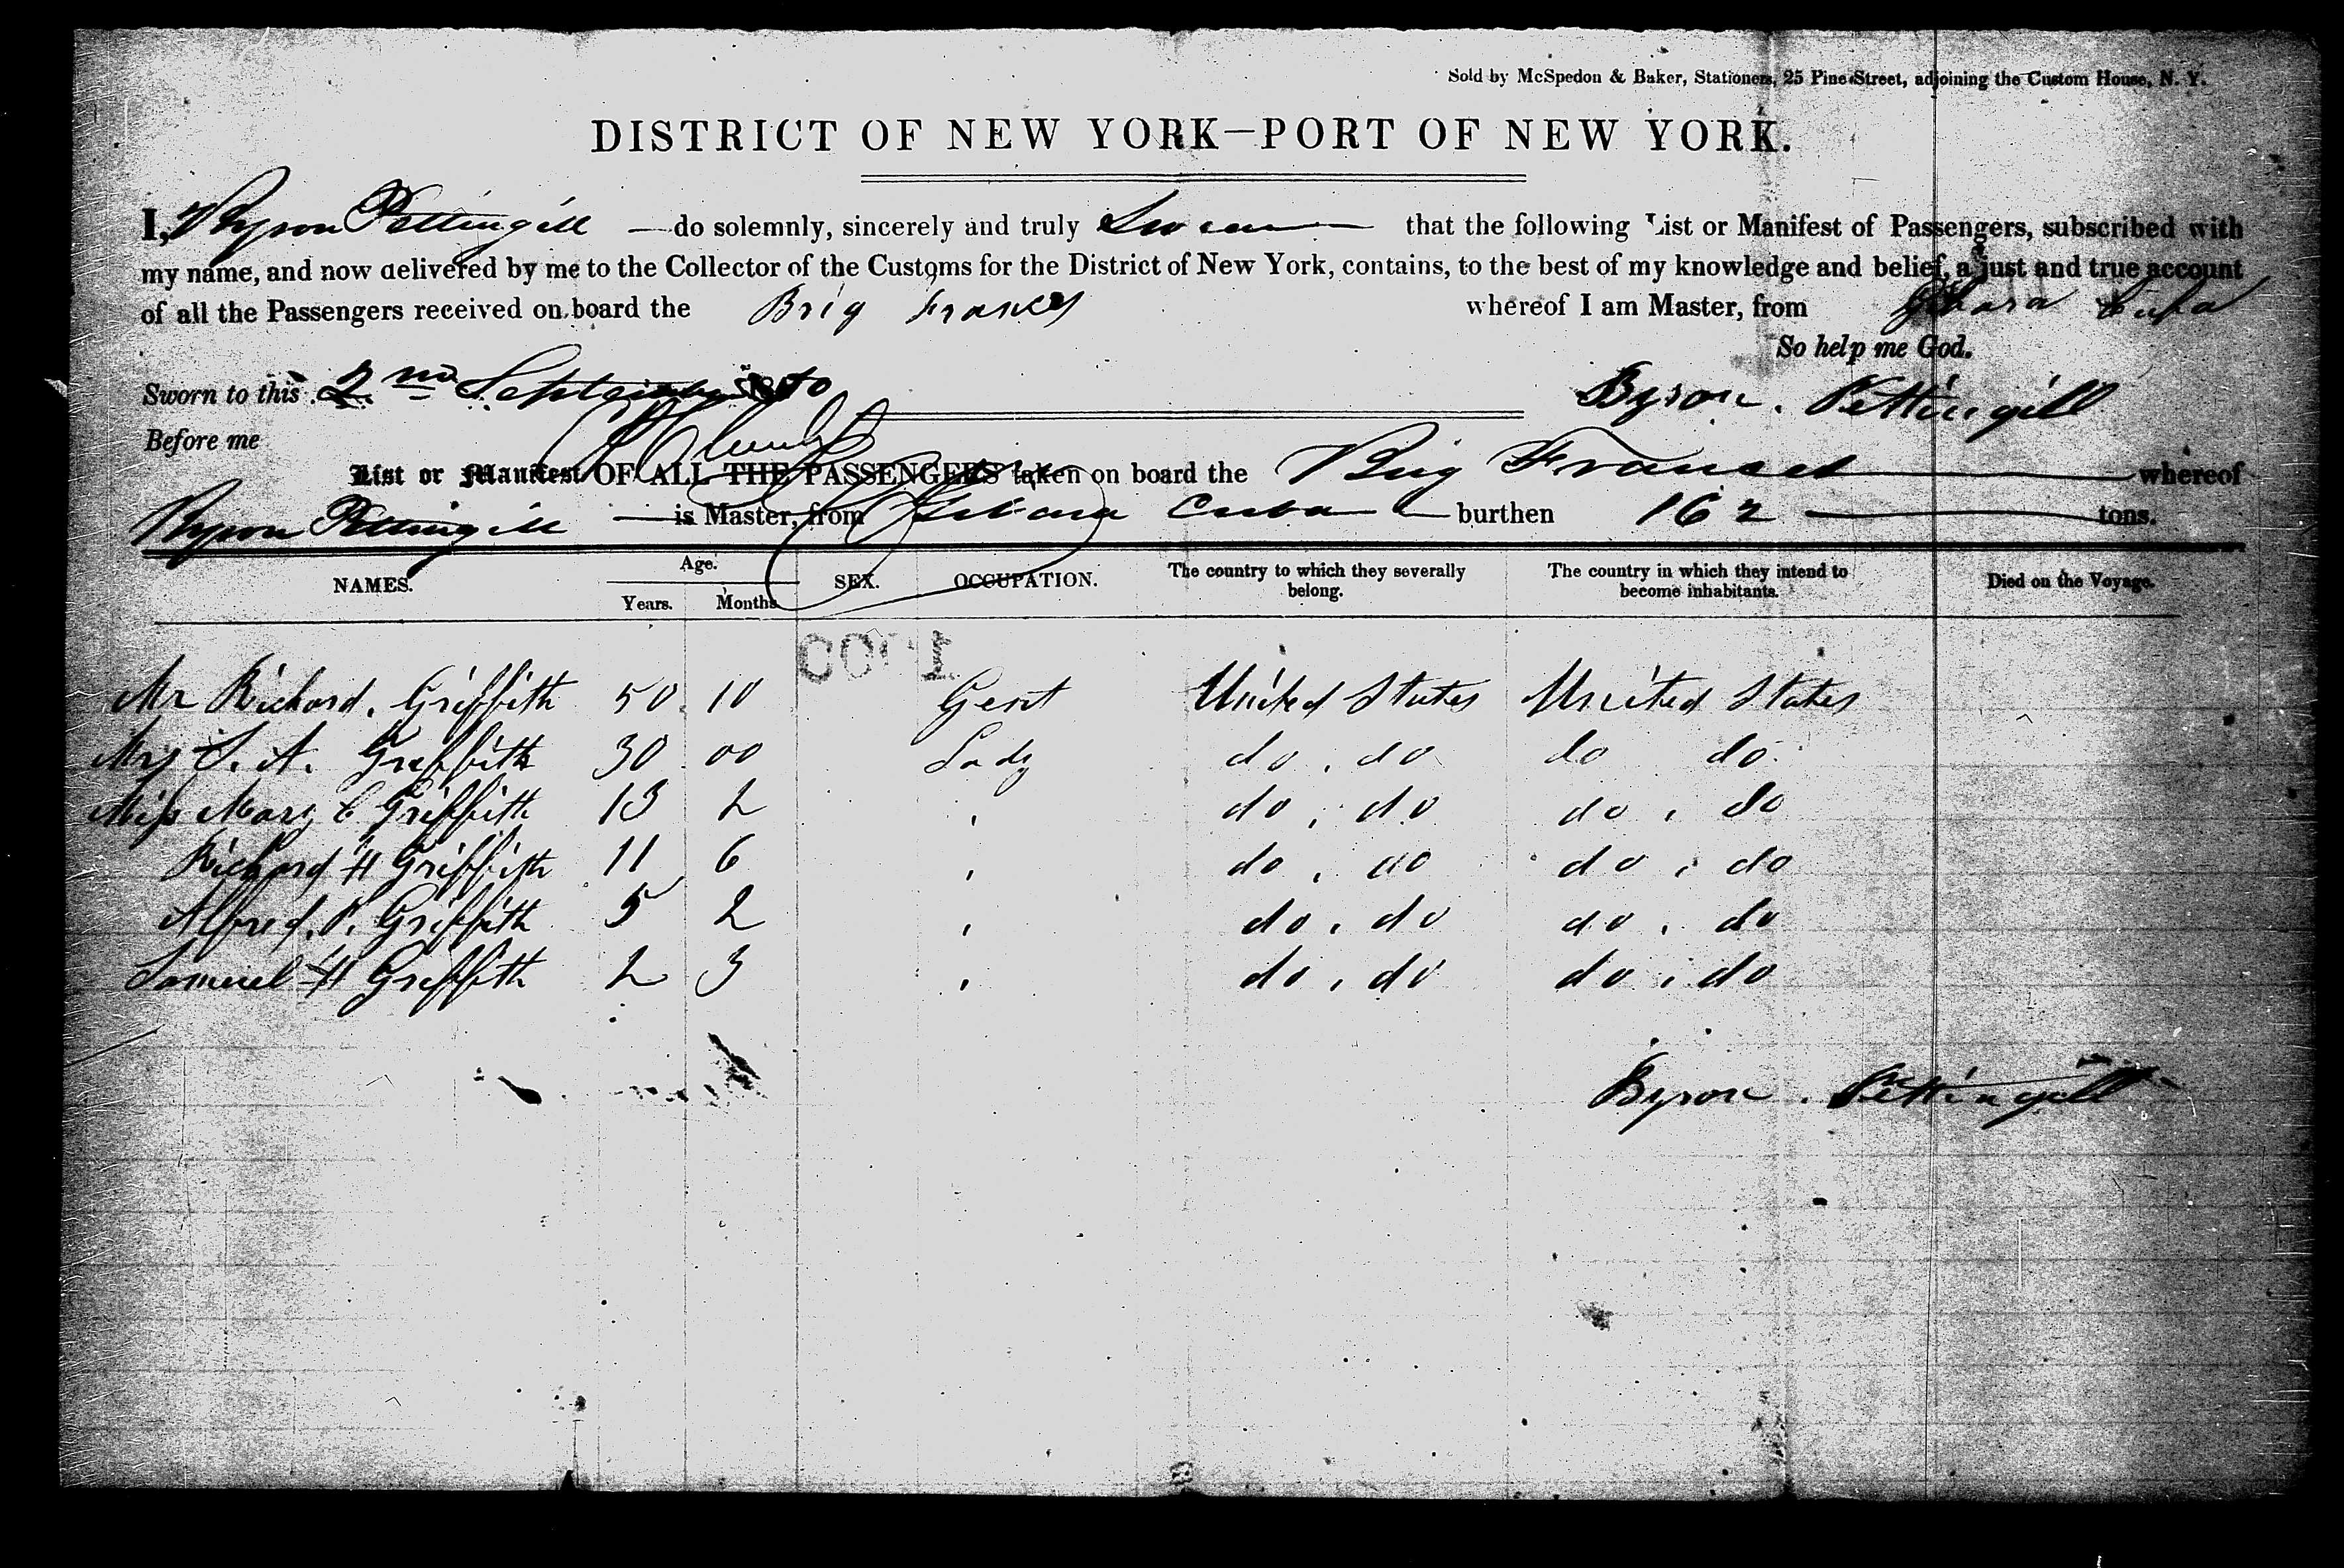 Sold by McSpedon & Baker, Stationers, 25 Pine Street, adjoining the Custom House, N. Y.
DISTRICT OF NEW YORK—PORT OF NEW YORK.
I, Byron Pettingill — do solemnly, sincerely and truly Swear that the following List or Manifest of Passengers, subscribed with
my name, and now delivered by me to the Collector of the Customs for the District of New York, contains, to the best of my knowledge and belief, a just and true account
of all the Passengers received on board the Brig Frances whereof I am Master, from Gibara Cuba
So help me God.
Sworn to this 2nd September 1850 Byron. Pettingill
Before me
List or Manifest OF ALL THE PASSENGERS taken on board the Brig Frances whereof
Byron Pettingill — is Master, from Gibara Cuba burthen 162 tons.
NAMES. Age. Years. Months. SEX. OCCUPATION. The country to which they severally belong. The country in which they intend to become inhabitants. Died on the Voyage.
Mr Richard. Griffith 50 10 Gent United States United States
Mrs S. A. Griffith 30 00 Lady do, do do do
Miss Mary C Griffith 13 2 " do, do do, do
Richard H Griffith 11 6 " do, do do, do
Alfred. P. Griffith 5 2 " do, do do, do
Samuel H Griffith 2 3 " do, do do, do
Byron. Pettingill